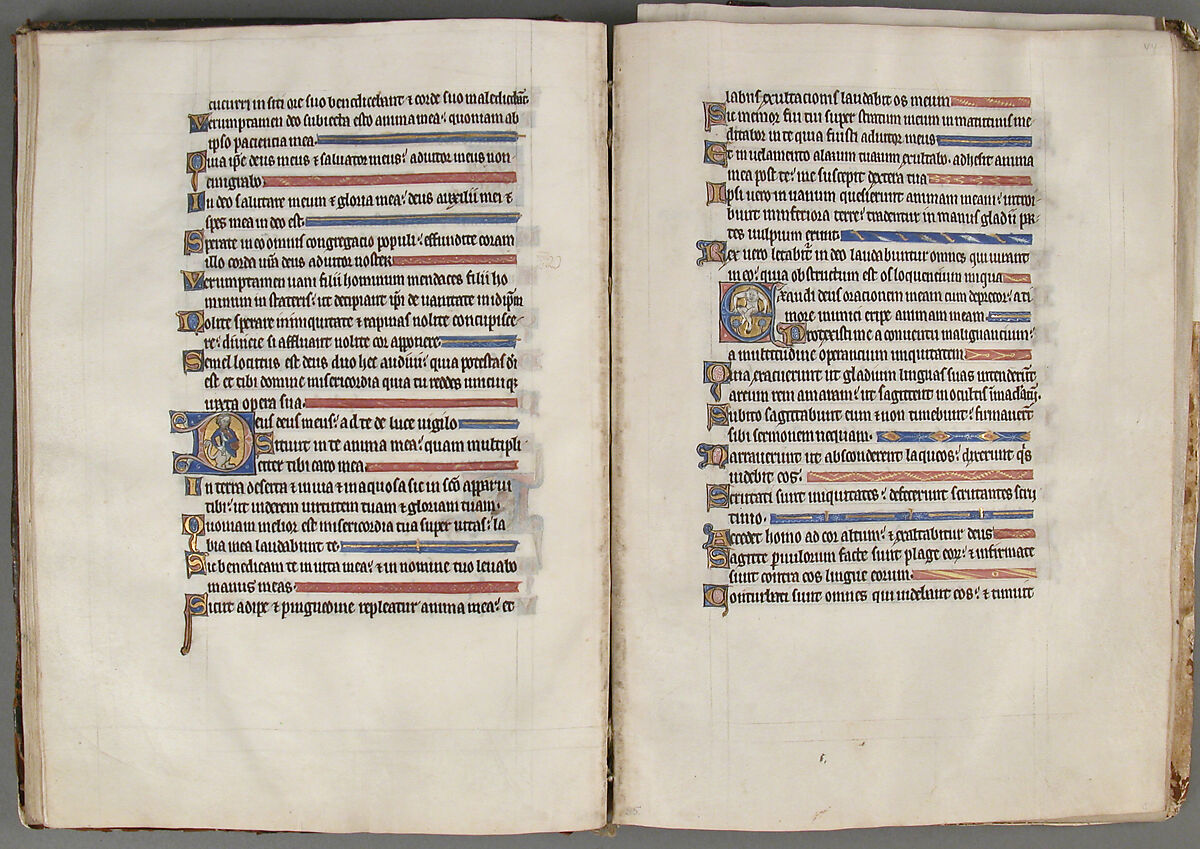 cucurri in siti ore suo benedicebant ⁊ corde suo maledicebāt
Verumptamen deo subiecta esto anima mea: quoniam ab
ipso paciencia mea.
Quia ipse deus meus ⁊ saluator meus: adiutor meus non
emigrabo
In deo salutare meum ⁊ gloria mea: deus auxilii mei ⁊
spes mea in deo est.
Sperate in eo omnis congregacio populi: effundite coram
illo corda vr̄a deus adiutor noster
Verumptamen uani filii hominum mendaces filii ho
minum in stateris: ut decipiant ip̄i de uanitate in idip̄m
Nolite sperare in iniquitate ⁊ rapinas nolite concupisce
re: diuicie si affluant nolite cor apponere.
Semel locutus est deus duo hec audiui: quia potestas d̄i
est et tibi domine misericordia quia tu reddes unicuiq;
iuxta opera sua.
Deus deus meus: ad te de luce uigilo
Sitiuit in te anima mea: quam multipli
citer tibi caro mea
In terra deserta ⁊ inuia ⁊ inaquosa sic in sc̄o apparui
tibi: ut uiderem uirtutem tuam ⁊ gloriam tuam.
Quoniam melior est misericordia tua super uitas: la
bia mea laudabunt te.
Sic benedicam te in uita mea: ⁊ in nomine tuo leuabo
manus meas.
Sicut adipe ⁊ pinguedine repleatur anima mea: et
labiis exultacionis laudabit os meum
Sic memor fui tui super stratum meum in matutinis me
ditabor in te quia fuisti adiutor meus
Et in uelamento alarum tuarum exultabo. adhesit anima
mea post te: me suscepit dextera tua
Ipsi uero in uanum quesierunt animam meam: introi
bunt in inferiora terre: tradentur in manus gladii par
tes uulpium erunt.
Rex uero letabit̄ in deo laudabuntur omnes qui iurant
in eo: quia obstructum est os loquencium iniqua
Exaudi deus oracionem meam cum deprecor: a ti
more inimici eripe animam meam.
Protexisti me a conuentu malignancium:
a multitudine operancium iniquitatem
Quia exacuerunt ut gladium linguas suas intenderūt
arcum rem amaram: ut sagittent in occultis īmaculatū.
Subito sagittabunt eum ⁊ non timebunt: firmauerūt
sibi sermonem nequam.
Narrauerunt ut absconderent laqueos: dixerunt q̄s
uidebit eos.
Scrutati sunt iniquitates: defecerunt scrutantes scru
tinio.
Accedet homo ad cor altum: ⁊ exaltabitur deus
Sagitte p̄uulorum facte sunt plage eor̄: ⁊ infirmate
sunt contra eos lingue eorum.
Conturbati sunt omnes qui uidebant eos: ⁊ timuit